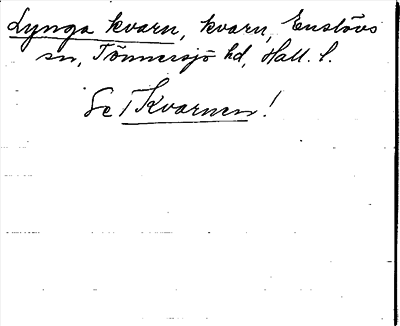 Lynga kvarn, kvarn, Enslövs
sn, Tönnersjö hd, Hall. l.
Se 1 Kvarnen!